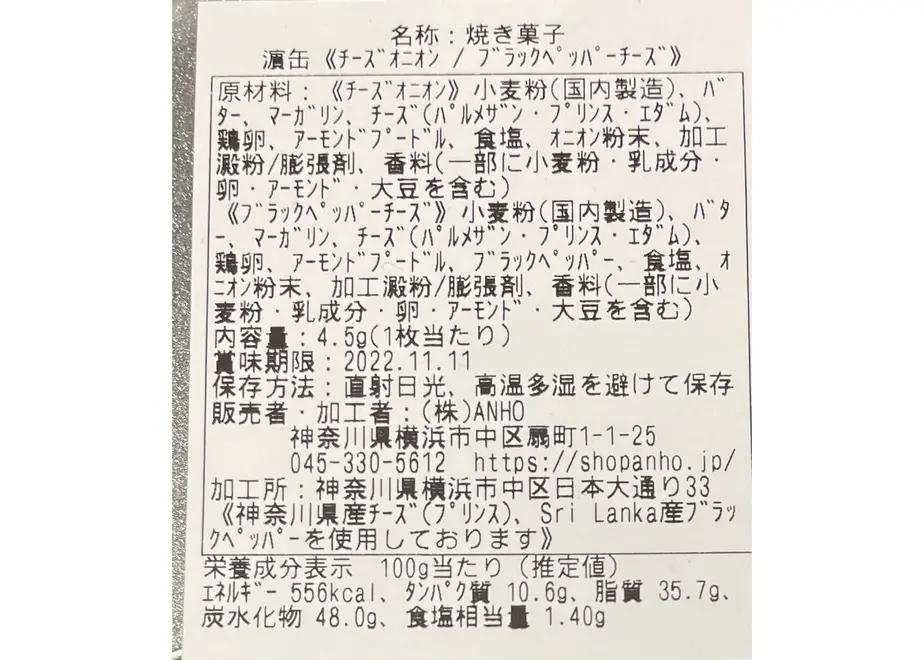 名称：焼き菓子
濵缶《ﾁｰｽﾞｵﾆｵﾝ / ﾌﾞﾗｯｸﾍﾟｯﾊﾟｰﾁｰｽﾞ》
原材料：《ﾁｰｽﾞｵﾆｵﾝ》小麦粉(国内製造)、ﾊﾞ
ﾀｰ、ﾏｰｶﾞﾘﾝ、ﾁｰｽﾞ(ﾊﾟﾙﾒｻﾞﾝ・ﾌﾟﾘﾝｽ・ｴﾀﾞﾑ)、
鶏卵、ｱｰﾓﾝﾄﾞﾌﾟｰﾄﾞﾙ、食塩、ｵﾆｵﾝ粉末、加工
澱粉/膨張剤、香料(一部に小麦粉・乳成分・
卵・ｱｰﾓﾝﾄﾞ・大豆を含む)
《ﾌﾞﾗｯｸﾍﾟｯﾊﾟｰﾁｰｽﾞ》小麦粉(国内製造)、ﾊﾞﾀ
ｰ、ﾏｰｶﾞﾘﾝ、ﾁｰｽﾞ(ﾊﾟﾙﾒｻﾞﾝ・ﾌﾟﾘﾝｽ・ｴﾀﾞﾑ)、
鶏卵、ｱｰﾓﾝﾄﾞﾌﾟｰﾄﾞﾙ、ﾌﾞﾗｯｸﾍﾟｯﾊﾟｰ、食塩、ｵ
ﾆｵﾝ粉末、加工澱粉/膨張剤、香料(一部に小
麦粉・乳成分・卵・ｱｰﾓﾝﾄﾞ・大豆を含む)
内容量：4.5g(1枚当たり)
賞味期限：2022.11.11
保存方法：直射日光、高温多湿を避けて保存
販売者・加工者：(株)ANHO
神奈川県横浜市中区扇町1-1-25
045-330-5612 https://shopanho.jp/
加工所：神奈川県横浜市中区日本大通り33
《神奈川県産ﾁｰｽﾞ(ﾌﾟﾘﾝｽ)、Sri Lanka産ﾌﾞﾗｯ
ｸﾍﾟｯﾊﾟｰを使用しております》
栄養成分表示 100g当たり（推定値）
ｴﾈﾙｷﾞｰ 556kcal、ﾀﾝﾊﾟｸ質 10.6g、脂質 35.7g、
炭水化物 48.0g、食塩相当量 1.40g